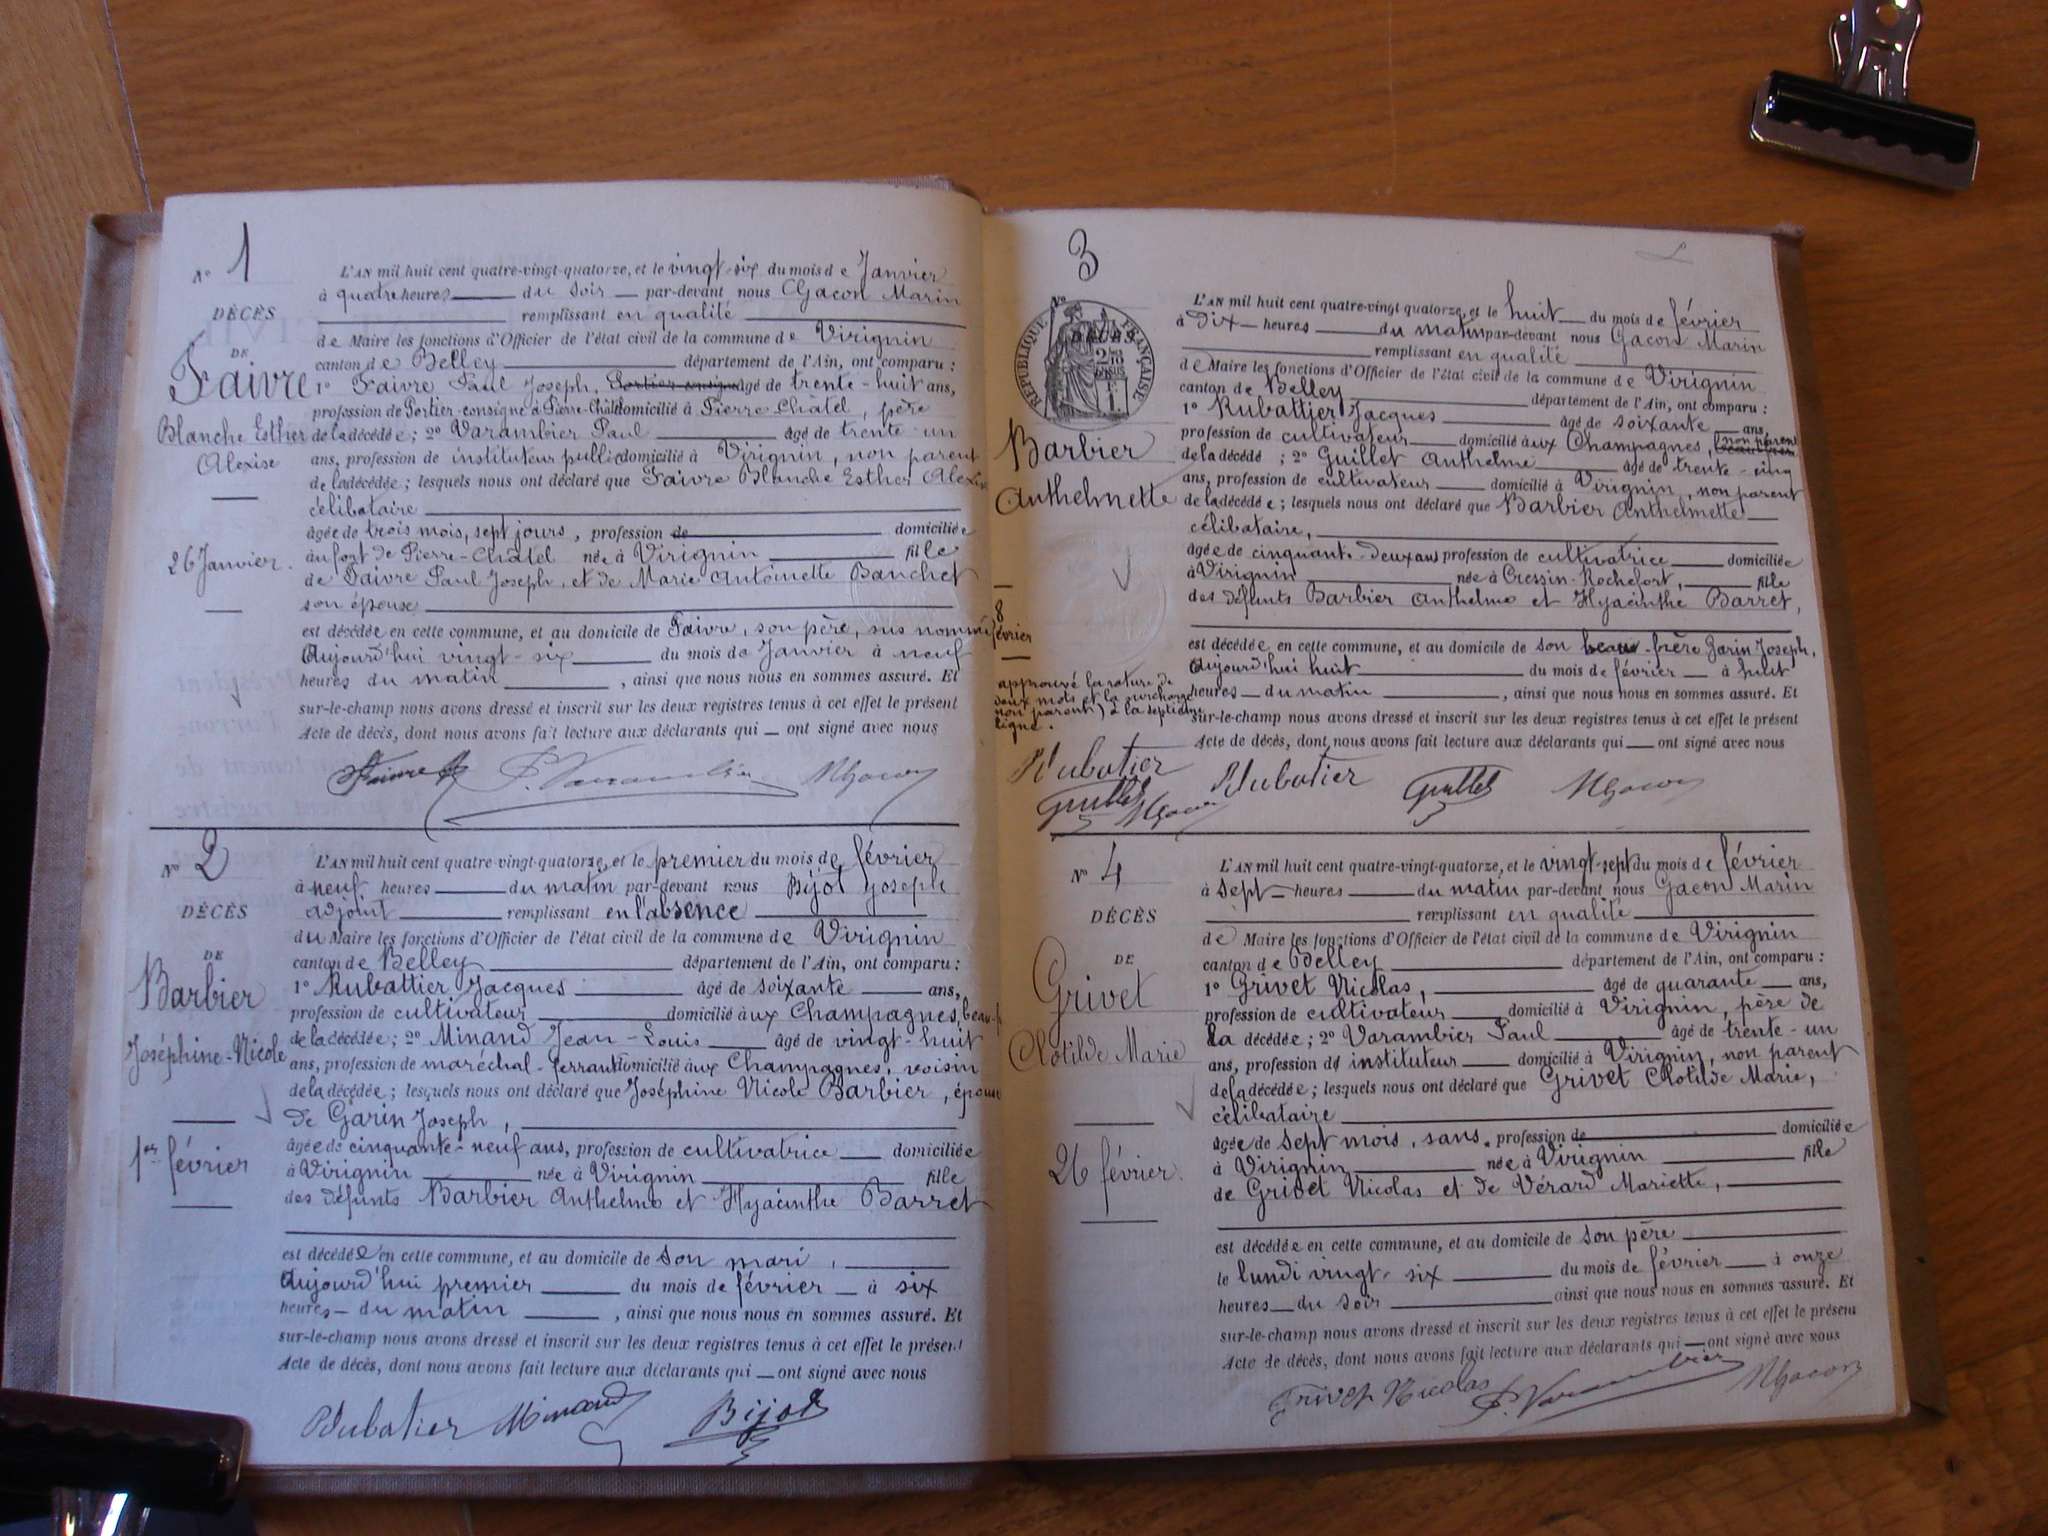 N° 1
DÉCÈS
DE
Faivre
Blanche Esther
Alexise
26 Janvier.
L'AN mil huit cent quatre-vingt-quatorze, et le vingt-six du mois de Janvier
à quatre heures du soir par-devant nous Gacon Marin
remplissant en qualité
de Maire les fonctions d'Officier de l'état civil de la commune de Virignin
canton de Belley département de l'Ain, ont comparu :
1° Faivre Paul Joseph, âgé de trente-huit ans,
profession de Portier-consigne à Pierre-Châtel domicilié à Pierre Châtel, père
de la décédée ; 2° Varambier Paul âgé de trente-un
ans, profession de instituteur public domicilié à Virignin, non parent
de la décédée ; lesquels nous ont déclaré que Faivre Blanche Esther Alexise
célibataire
âgée de trois mois, sept jours, profession de domiciliée
au fort de Pierre-Châtel née à Virignin fille
de Faivre Paul Joseph, et de Marie Antoinette Banchet
son épouse
est décédée en cette commune, et au domicile de Faivre, son père, sus nommé
Aujourd'hui vingt-six du mois de Janvier à neuf
heures du matin, ainsi que nous nous en sommes assuré. Et
sur-le-champ nous avons dressé et inscrit sur les deux registres tenus à cet effet le présent
Acte de décès, dont nous avons fait lecture aux déclarants qui ont signé avec nous
Faivre P. Varambier MGacon
N° 2
DÉCÈS
DE
Barbier
Joséphine-Nicole
1er février
L'AN mil huit cent quatre-vingt-quatorze, et le premier du mois de février
à neuf heures du matin par-devant nous Bijot Joseph
adjoint remplissant en l'absence
du Maire les fonctions d'Officier de l'état civil de la commune de Virignin
canton de Belley département de l'Ain, ont comparu :
1° Rubattier Jacques âgé de soixante ans,
profession de cultivateur domicilié aux Champagnes, beau-f
de la décédée ; 2° Minand Jean-Louis âgé de vingt-huit
ans, profession de maréchal-ferrant domicilié aux Champagnes, voisin
de la décédée ; lesquels nous ont déclaré que Joséphine Nicole Barbier, épouse
de Garin Joseph,
âgée de cinquante-neuf ans, profession de cultivatrice domiciliée
à Virignin née à Virignin fille
des défunts Barbier Anthelme et Hyacinthe Barret
est décédée en cette commune, et au domicile de son mari,
Aujourd'hui premier du mois de février à six
heures du matin, ainsi que nous nous en sommes assuré. Et
sur-le-champ nous avons dressé et inscrit sur les deux registres tenus à cet effet le présent
Acte de décès, dont nous avons fait lecture aux déclarants qui ont signé avec nous
Rubatier Minand Bijot
3
N°
RÉPUBLIQUE FRANÇAISE
Barbier
Anthelmette
8
février
approuvé la rature de
deux mots et la surcharge
(non parent) à la septième
ligne.
Rubatier
Guillet MGacon
L'AN mil huit cent quatre-vingt quatorze, et le huit du mois de février
à dix heures du matin par-devant nous Gacon Marin
remplissant en qualité
de Maire les fonctions d'Officier de l'état civil de la commune de Virignin
canton de Belley département de l'Ain, ont comparu :
1° Rubattier Jacques âgé de soixante ans,
profession de cultivateur domicilié aux Champagnes, (non parent
de la décédé ; 2° Guillet Anthelme âgé de trente-cinq
ans, profession de cultivateur domicilié à Virignin, non parent
de la décédée ; lesquels nous ont déclaré que Barbier Anthelmette
célibataire,
âgée de cinquante-deux ans profession de cultivatrice domiciliée
à Virignin née à Cressin-Rochefort, fille
des défunts Barbier Anthelme et Hyacinthe Barret,
est décédée en cette commune, et au domicile de son beau-frère Garin Joseph,
Aujourd'hui huit du mois de février à huit
heures du matin, ainsi que nous nous en sommes assuré. Et
sur-le-champ nous avons dressé et inscrit sur les deux registres tenus à cet effet le présent
Acte de décès, dont nous avons fait lecture aux déclarants qui ont signé avec nous
Rubatier Guillet MGacon
N° 4
DÉCÈS
DE
Grivet
Clotilde Marie
26 février.
L'AN mil huit cent quatre-vingt-quatorze, et le vingt-sept du mois de février
à sept heures du matin par-devant nous Gacon Marin
remplissant en qualité
de Maire les fonctions d'Officier de l'état civil de la commune de Virignin
canton de Belley département de l'Ain, ont comparu :
1° Grivet Nicolas, âgé de quarante ans,
profession de cultivateur domicilié à Virignin, père de
la décédée ; 2° Varambier Paul âgé de trente-un
ans, profession de instituteur domicilié à Virignin, non parent
de la décédée ; lesquels nous ont déclaré que Grivet Clotilde Marie,
célibataire
âgée de sept mois, sans, profession de domiciliée
à Virignin née à Virignin fille
de Grivet Nicolas et de Vérard Mariette,
est décédée en cette commune, et au domicile de son père
le lundi vingt-six du mois de février à onze
heures du soir ainsi que nous nous en sommes assuré. Et
sur-le-champ nous avons dressé et inscrit sur les deux registres tenus à cet effet le présent
Acte de décès, dont nous avons fait lecture aux déclarants qui ont signé avec nous
Grivet Nicolas P. Varambier MGacon